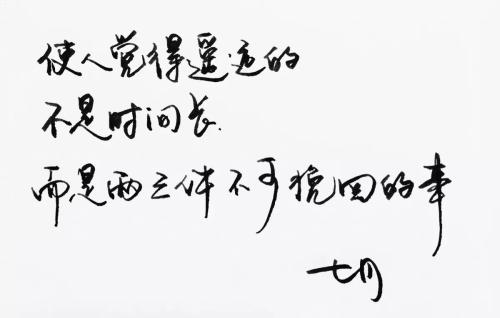 使人觉得遥远的
不是时间长.
而是两三件不可挽回的事
七月